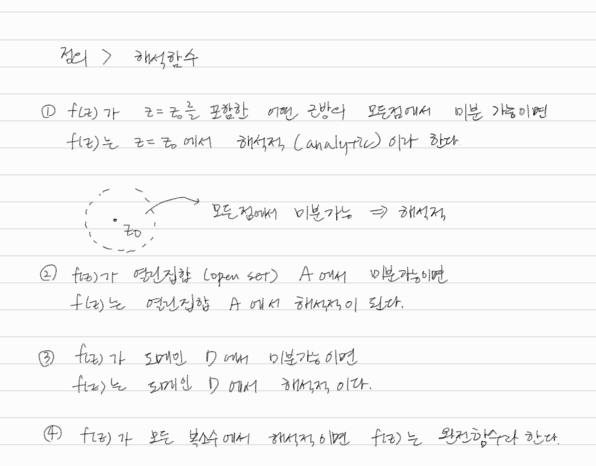 정의 > 해석함수
① f(z)가 z=z₀를 포함한 어떤 근방의 모든점에서 미분 가능이면
f(z)는 z=z₀에서 해석적(analytic)이라 한다
z₀ 모든점에서 미분가능 ⇒ 해석적
② f(z)가 열린집합 (open set) A에서 미분가능이면
f(z)는 열린집합 A에서 해석적이 된다.
③ f(z)가 도메인 D에서 미분가능이면
f(z)는 도메인 D에서 해석적이다.
④ f(z)가 모든 복소수에서 해석적이면 f(z)는 완전함수라 한다.